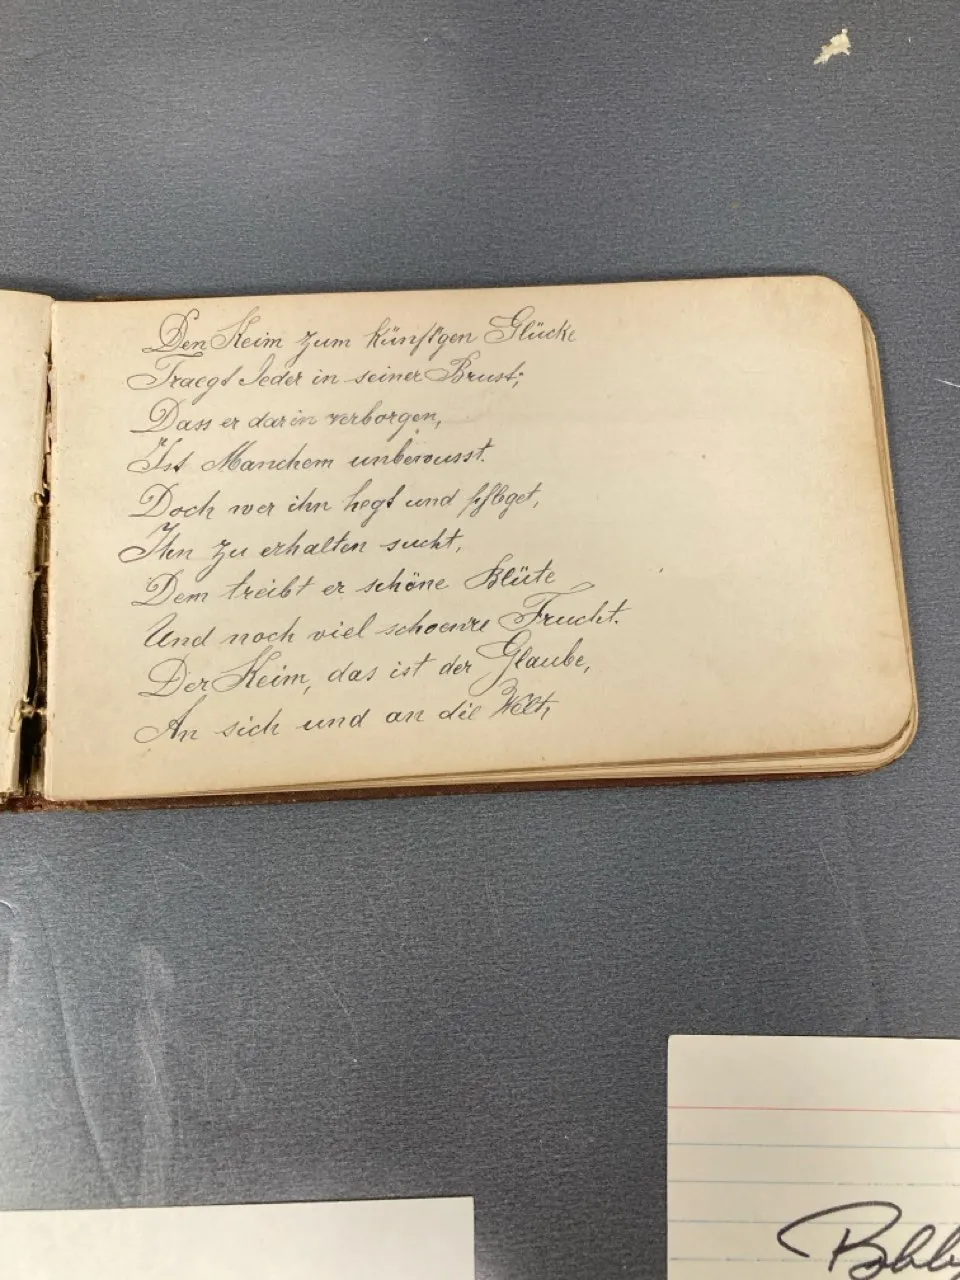 Den Keim zum künft'gen Glücke
Traegt Jeder in seiner Brust;
Dass er darin verborgen,
Ist Manchem unbewusst.
Doch wer ihn hegt und pfleget,
Ihn zu erhalten sucht,
Dem treibt er schöne Blüte
Und noch viel schoenre Frucht.
Der Keim, das ist der Glaube,
An sich und an die Welt,